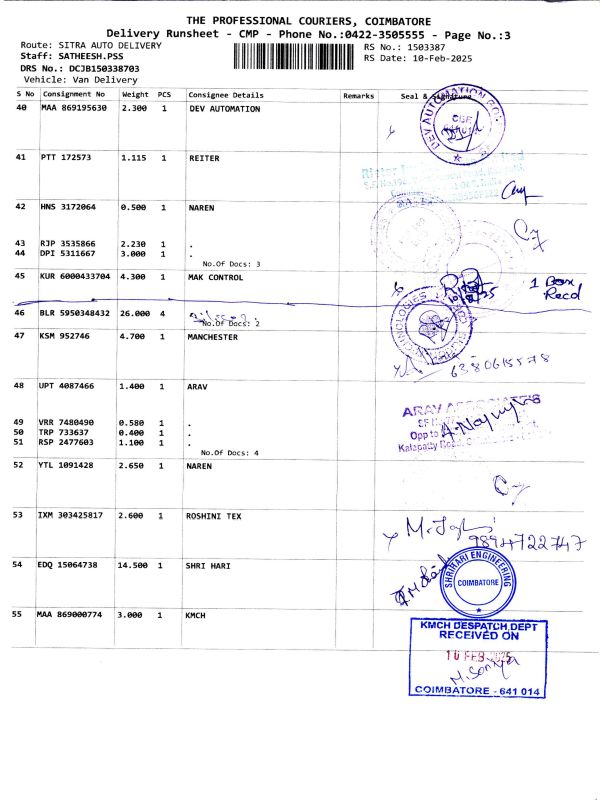 THE PROFESSIONAL COURIERS, COIMBATORE
Delivery Runsheet - CMP - Phone No.:0422-3505555 - Page No.:3
Route: SITRA AUTO DELIVERY RS No.: 1503387
Staff: SATHEESH.PSS RS Date: 10-Feb-2025
DRS No.: DCJB150338703
Vehicle: Van Delivery
S No Consignment No Weight PCS Consignee Details Remarks Seal & Signature
40 MAA 869195630 2.300 1 DEV AUTOMATION
DEV AUTOMATION
41 PTT 172573 1.115 1 REITER
42 HNS 3172064 0.500 1 NAREN
43 RJP 3535866 2.230 1 .
44 DPI 5311667 3.000 1 .
No.Of Docs: 3
45 KUR 6000433704 4.300 1 MAK CONTROL
1 Box
Recd
46 BLR 5950348432 26.000 4
No.Of Docs: 2
TECHNOLOGIES
47 KSM 952746 4.700 1 MANCHESTER
6380615578
48 UPT 4087466 1.400 1 ARAV
ARAV ASSOCIATES
Opp to
Kalapatty Road
49 VRR 7480490 0.580 1 .
50 TRP 733637 0.400 1 .
51 RSP 2477603 1.100 1 .
No.Of Docs: 4
52 YTL 1091428 2.650 1 NAREN
53 IXM 303425817 2.600 1 ROSHINI TEX
9894722747
54 EDQ 15064738 14.500 1 SHRI HARI
SHRIHARI ENGINEERING
COIMBATORE
55 MAA 869000774 3.000 1 KMCH
KMCH DESPATCH DEPT
RECEIVED ON
10 FEB 2025
M. Sonya
COIMBATORE - 641 014